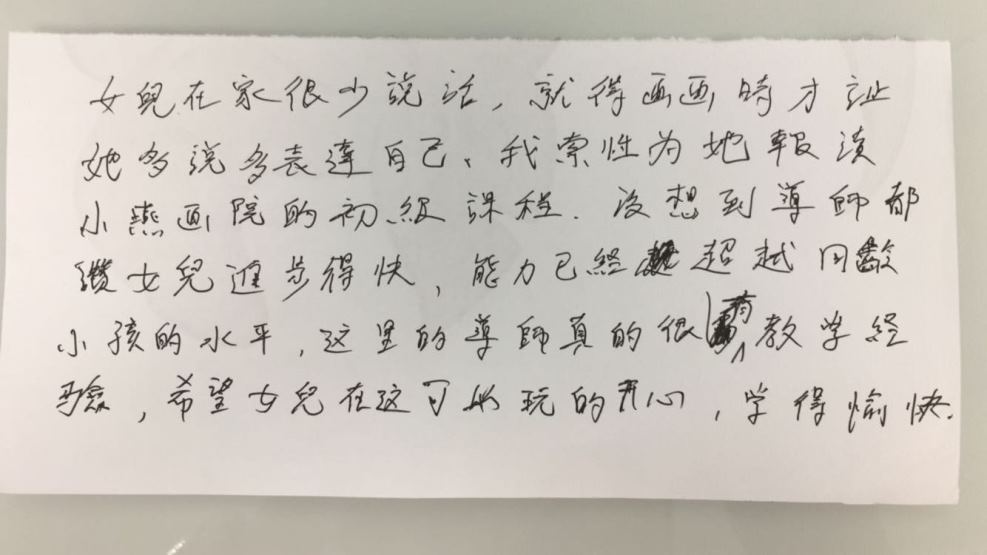 女兒在家很少說话，就得画画時才让
她多说多表達自己、我索性为她報读
小燕画院的初級課程．沒想到導師都
讚女兒進步得快，能力已経超越同齡
小孩的水平，这里的導師真的很有教学経
驗，希望女兒在这可以玩的开心，学得愉快.